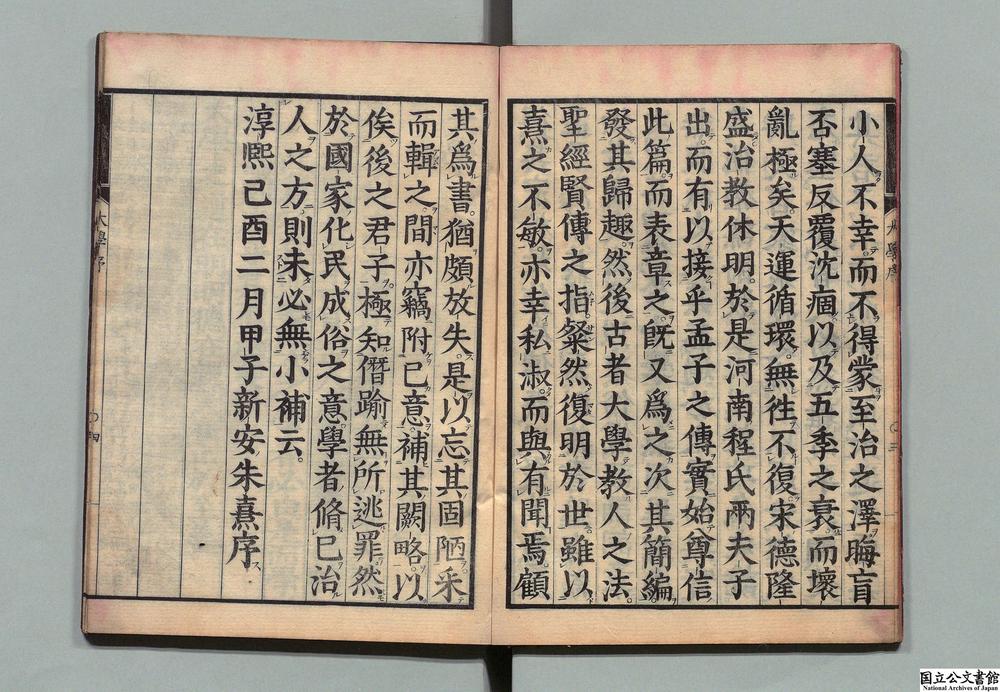 小人不幸而不得蒙至治之澤晦盲
否塞反覆沈痼以及五季之衰而壞
亂極矣。天運循環。無徃不復。宋德隆
盛治教休明。於是河南程氏兩夫子
出。而有以接乎孟子之傳。實始尊信
此篇。而表章之。旣又爲之次其簡編。
發其歸趣。然後古者大學教人之法。
聖經賢傳之指。粲然復明於世。雖以
熹之不敏。亦幸私淑。而與有聞焉。顧
其爲書。猶頗放失。是以忘其固陋采
而輯之。間亦竊附己意。補其闕略。以
俟後之君子。極知僭踰無所逃罪。然
於國家化民成俗之意。學者脩己治
人之方。則未必無小補云。
淳熙己酉二月甲子新安朱熹序
大學序
三
大學序
四
国立公文書館
National Archives of Japan